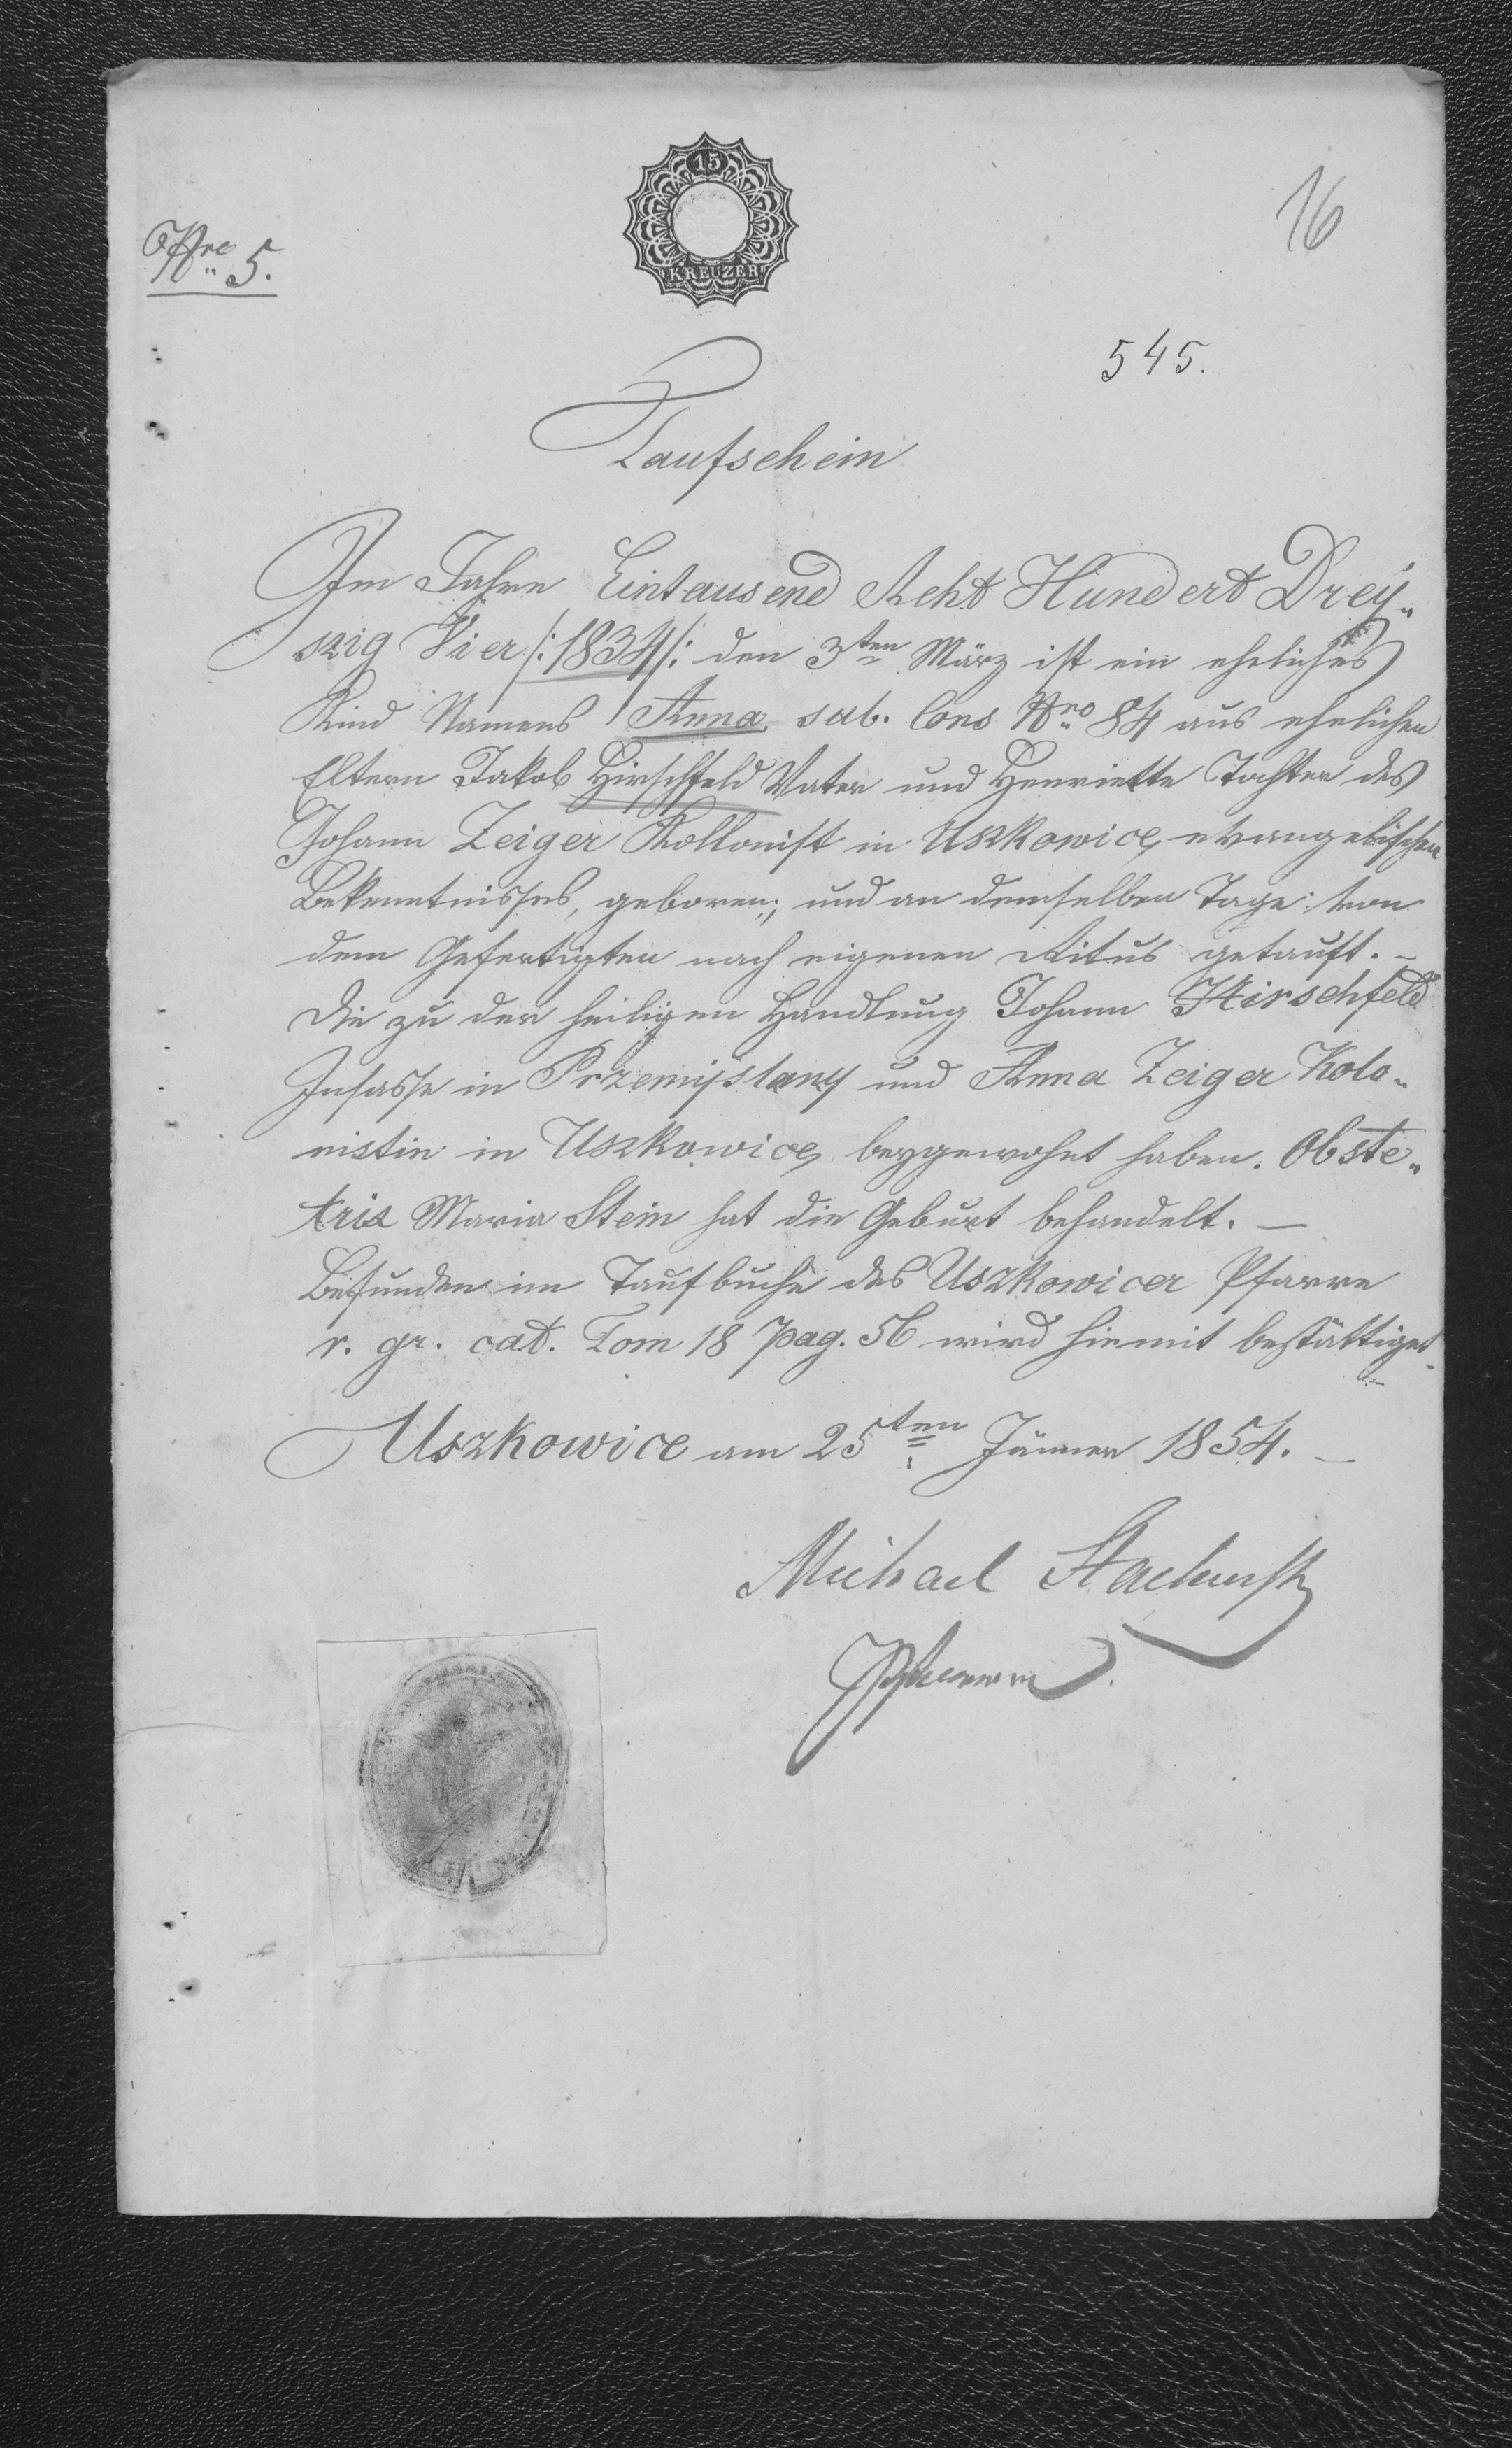 15
KREUZER
16
Nro 5.
545.
Taufschein
Im Jahre Eintausend Acht Hundert Drey„
szig Vier /: 1834 /: den 3ten März ist ein eheliches
Kind Namens Anna sub. Cons Nro 84 aus ehelichen
Eltern Jakob Hirschfeld Vater und Henriette Tochter des
Johann Zeiger Kollonist in Uszkowice, evangelischen
Bekenntnisses, geboren; und an demselben Tage von
dem Gefertigten nach eigenen Ritus getauft. –
Die zu der heiligen Handlung Johann Hirschfeld
Insasse in Przemyslany und Anna Zeiger Kolo„
nistin in Uszkowice, beygewohnt haben. Obste„
trix Maria Stein hat die Geburt behandelt. —
Befunden im Taufbuche des Uszkowicer Pfarre
r. gr. cat. Tom 18 pag. 56 wird hiemit bestättiget
Uszkowice am 25ten Jänner 1854. –
Michael